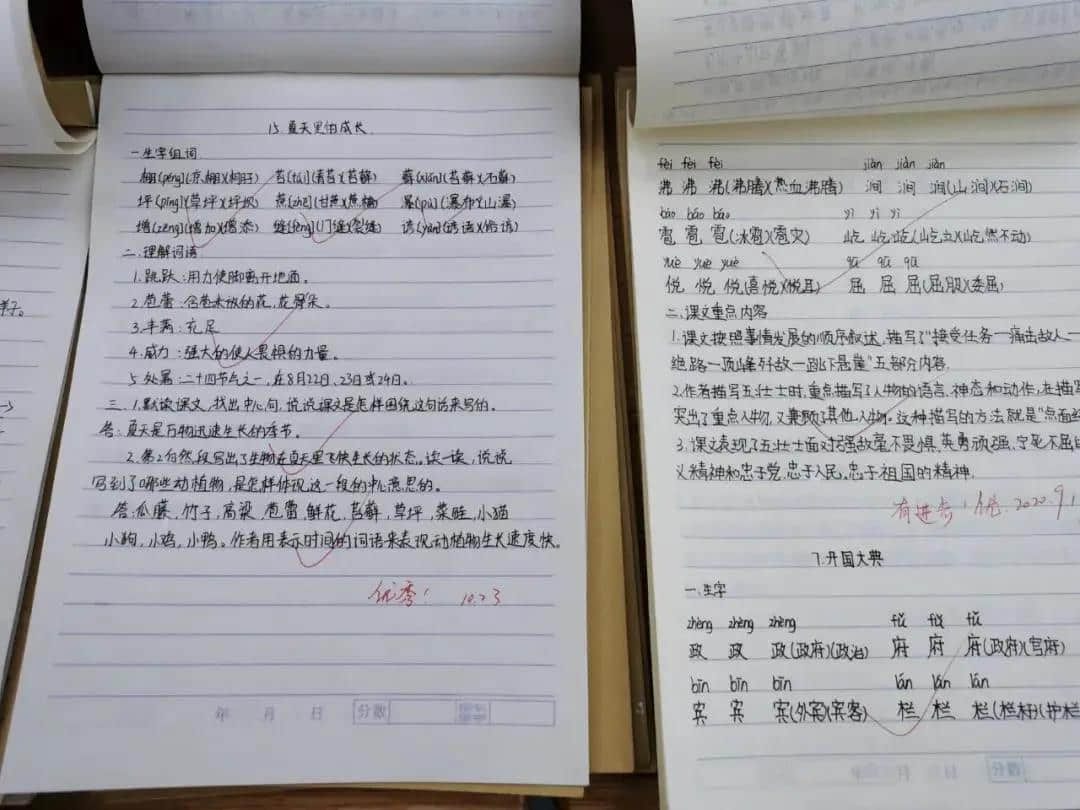 15.夏天里的成长
一.生字组词
棚(péng)(凉棚)(棚子) 苔(tái)(青苔)(苔藓) 藓(xiǎn)(苔藓)(石藓)
坪(píng)(草坪)(坪坝) 蔗(zhè)(甘蔗)(蔗糖) 瀑(pù)(瀑布)(山瀑)
增(zēng)(增加)(增添) 缝(fèng)(门缝)(裂缝) 谚(yàn)(谚语)(俗谚)
二.理解词语
1.跳跃:用力使脚离开地面。
2.苞蕾:含苞未放的花,花骨朵。
3.丰满:充足
4.威力:强大的使人畏惧的力量。
5.处暑:二十四节气之一,在8月22日、23日或24日。
三.1.默读课文,找出中心句,说说课文是怎样围绕这句话来写的。
答:夏天是万物迅速生长的季节。
2.第2自然段写出了生物在夏天里飞快生长的状态。读一读,说说
写到了哪些动植物,是怎样体现这一段的中心意思的。
答:瓜藤,竹子,高粱,苞蕾,鲜花,苔藓,草坪,菜畦,小猫
小狗,小鸡,小鸭。作者用表示时间的词语来表现动植物生长速度快。
优秀! 10.23
年 月 日 分数
fèi fèi fèi jiàn jiàn jiàn
沸 沸 沸(沸腾)(热血沸腾) 涧 涧 涧(山涧)(石涧)
báo báo báo yì yì yì
雹 雹 雹(冰雹)(雹灾) 屹 屹 屹(屹立)(屹然不动)
yuè yuè yuè qū qū qū
悦 悦 悦(喜悦)(悦耳) 屈 屈 屈(屈服)(委屈)
二.课文重点内容
1.课文按照事情发展的顺序叙述,描写了"接受任务一痛击敌人一
绝路一顶峰歼敌一跳下悬崖"五部分内容.
2.作者描写五壮士时,重点描写了人物的语言、神态和动作,在描写
突出了重点人物,又兼顾了其他人物。这种描写的方法就是"点面结
3.课文表现了五壮士面对强敌毫不畏惧、英勇顽强、宁死不屈的
义精神和忠于党、忠于人民、忠于祖国的精神.
有进步!优 2020.9.1
7.开国大典
一.生字
zhèng zhèng zhèng fǔ fǔ fǔ
政 政 政(政府)(政治) 府 府 府(政府)(官府)
bīn bīn bīn lán lán lán
宾 宾 宾(外宾)(宾客) 栏 栏 栏(栏杆)(护栏
年 月 日 分数